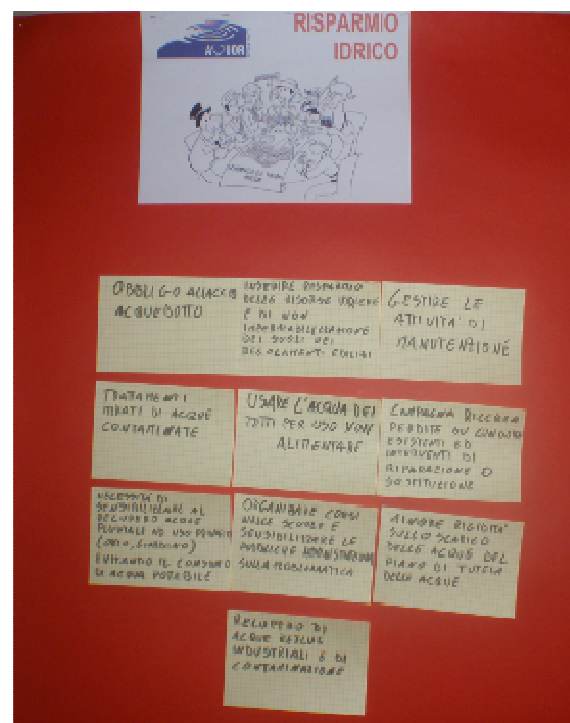 RISPARMIO
IDRICO
OBBLIGO ALLACCIO
ACQUEDOTTO
INSERIRE RISPARMIO
DELLE RISORSE IDRICHE
E DI NON
IMPERMEABILIZZAZIONE
DEI SUOLI NEI
REGOLAMENTI EDILIZI
GESTIRE LE
ATTIVITA' DI
MANUTENZIONE
TRATTAMENTI
MIRATI DI ACQUE
CONTAMINATE
USARE L'ACQUA DEI
TETTI PER USO NON
ALIMENTARE
CAMPAGNA RICERCA
PERDITE SU CONDOTTE
ESISTENTI ED
INTERVENTI DI
RIPARAZIONE O
SOSTITUZIONE
NECESSITÀ DI
SENSIBILIZZARE AL
RECUPERO ACQUE
PLUVIALI AD USO PRIVATO
(ORTO, GIARDINO)
EVITANDO IL CONSUMO
DI ACQUA POTABILE
ORGANIZZARE CORSI
NELLE SCUOLE E
SENSIBILIZZARE LE
PUBBLICHE AMMINISTRAZIONI
SULLA PROBLEMATICA
MINORE RIGIDITA'
SULLO SCARICO
DELLE ACQUE DEL
PIANO DI TUTELA
DELLE ACQUE
RECUPERO DI
ACQUE REFLUE
INDUSTRIALI E DI
CONTAMINAZIONE